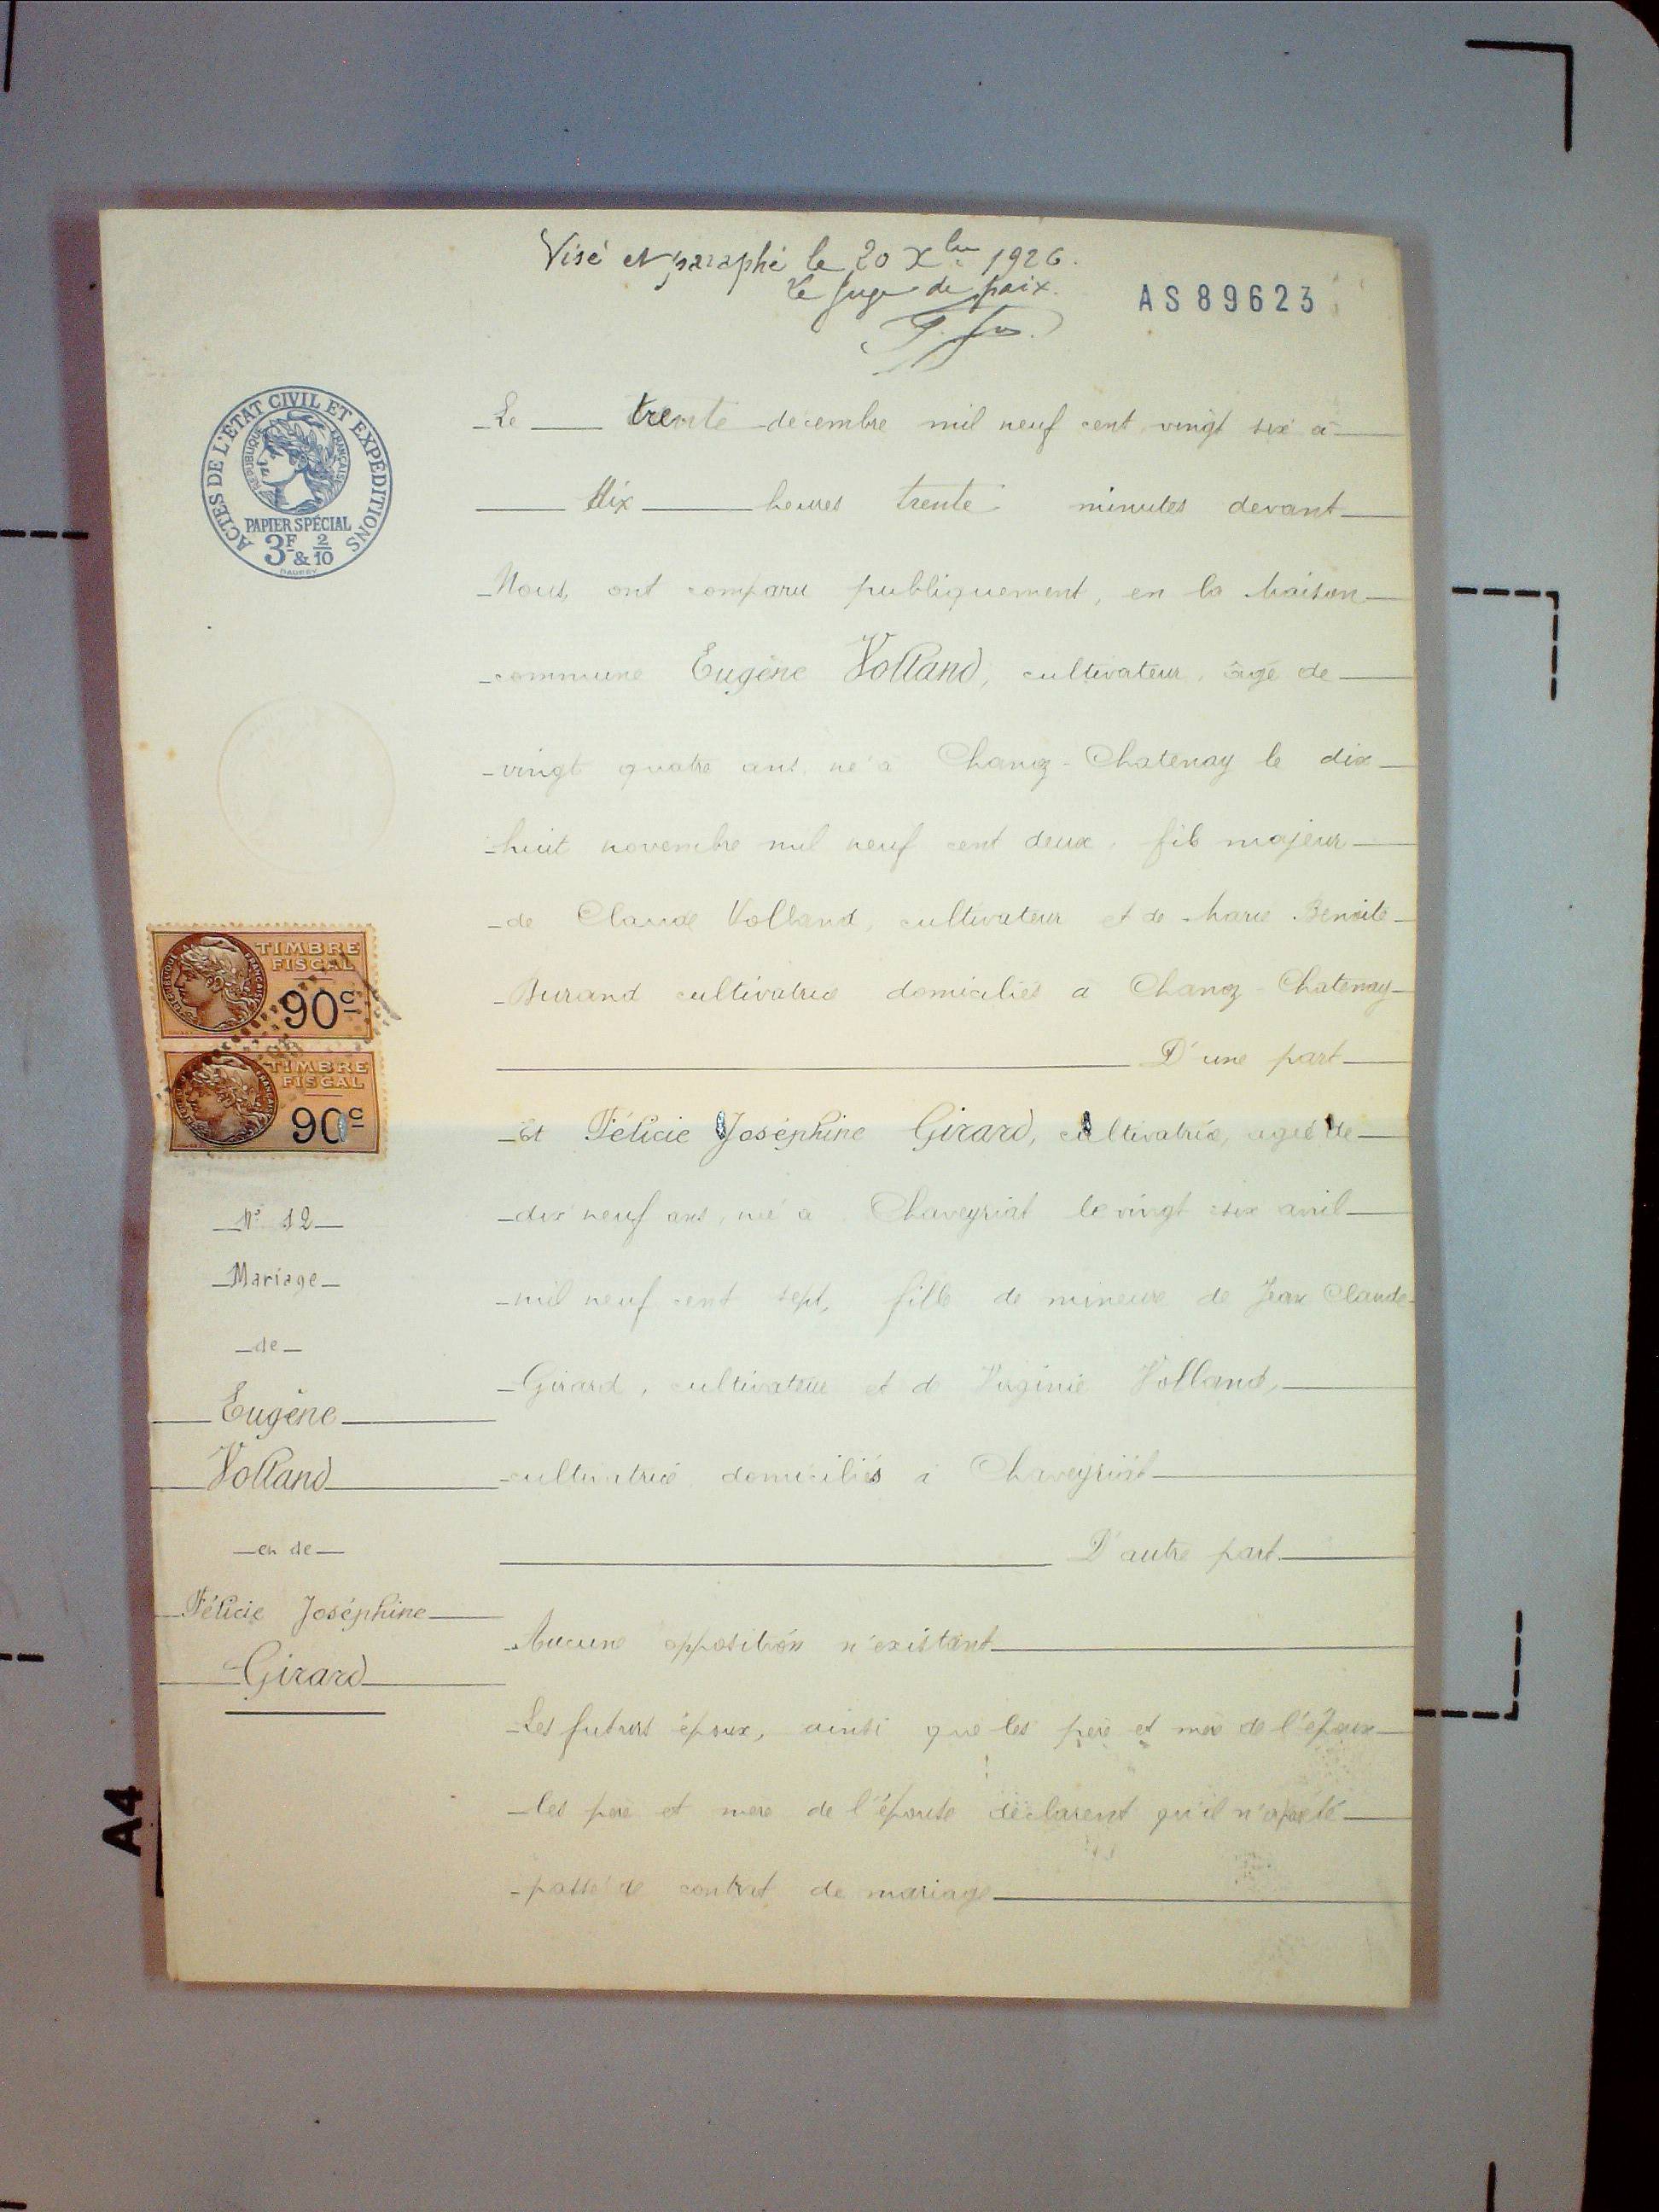 Visé et paraphé le 20 Xbre 1926.
Le Juge de paix.
AS89623
ACTES DE L'ETAT CIVIL ET EXPEDITIONS
REPUBLIQUE FRANÇAISE
PAPIER SPÉCIAL
3F & 2/10
Le trente décembre mil neuf cent vingt six à
dix heures trente minutes devant
Nous, ont comparu publiquement, en la Maison
commune Eugène Volland, cultivateur, âgé de
vingt quatre ans, né à Chanoz-Chatenay le dix
huit novembre mil neuf cent deux, fils majeur
de Claude Volland, cultivateur et de Marie Benoite
Durand cultivatrice domiciliés à Chanoz-Chatenay
D'une part
Et Félicie Joséphine Girard, cultivatrice, agée de
dix neuf ans, née à Chaveyriat le vingt six avril
mil neuf cent sept, fille de mineure de Jean Claude
Girard, cultivateur et de Virginie Volland,
cultivatrice domiciliés à Chaveyriat
D'autre part.
Aucune opposition n'existant
Les futurs époux, ainsi que les père et mère de l'époux
les père et mère de l'épouse déclarent qu'il n'a pas été
passé de contrat de mariage
TIMBRE
FISCAL
90c
TIMBRE
FISCAL
90c
N° 12
Mariage
de
Eugène
Volland
en de
Félicie Joséphine
Girard
A4